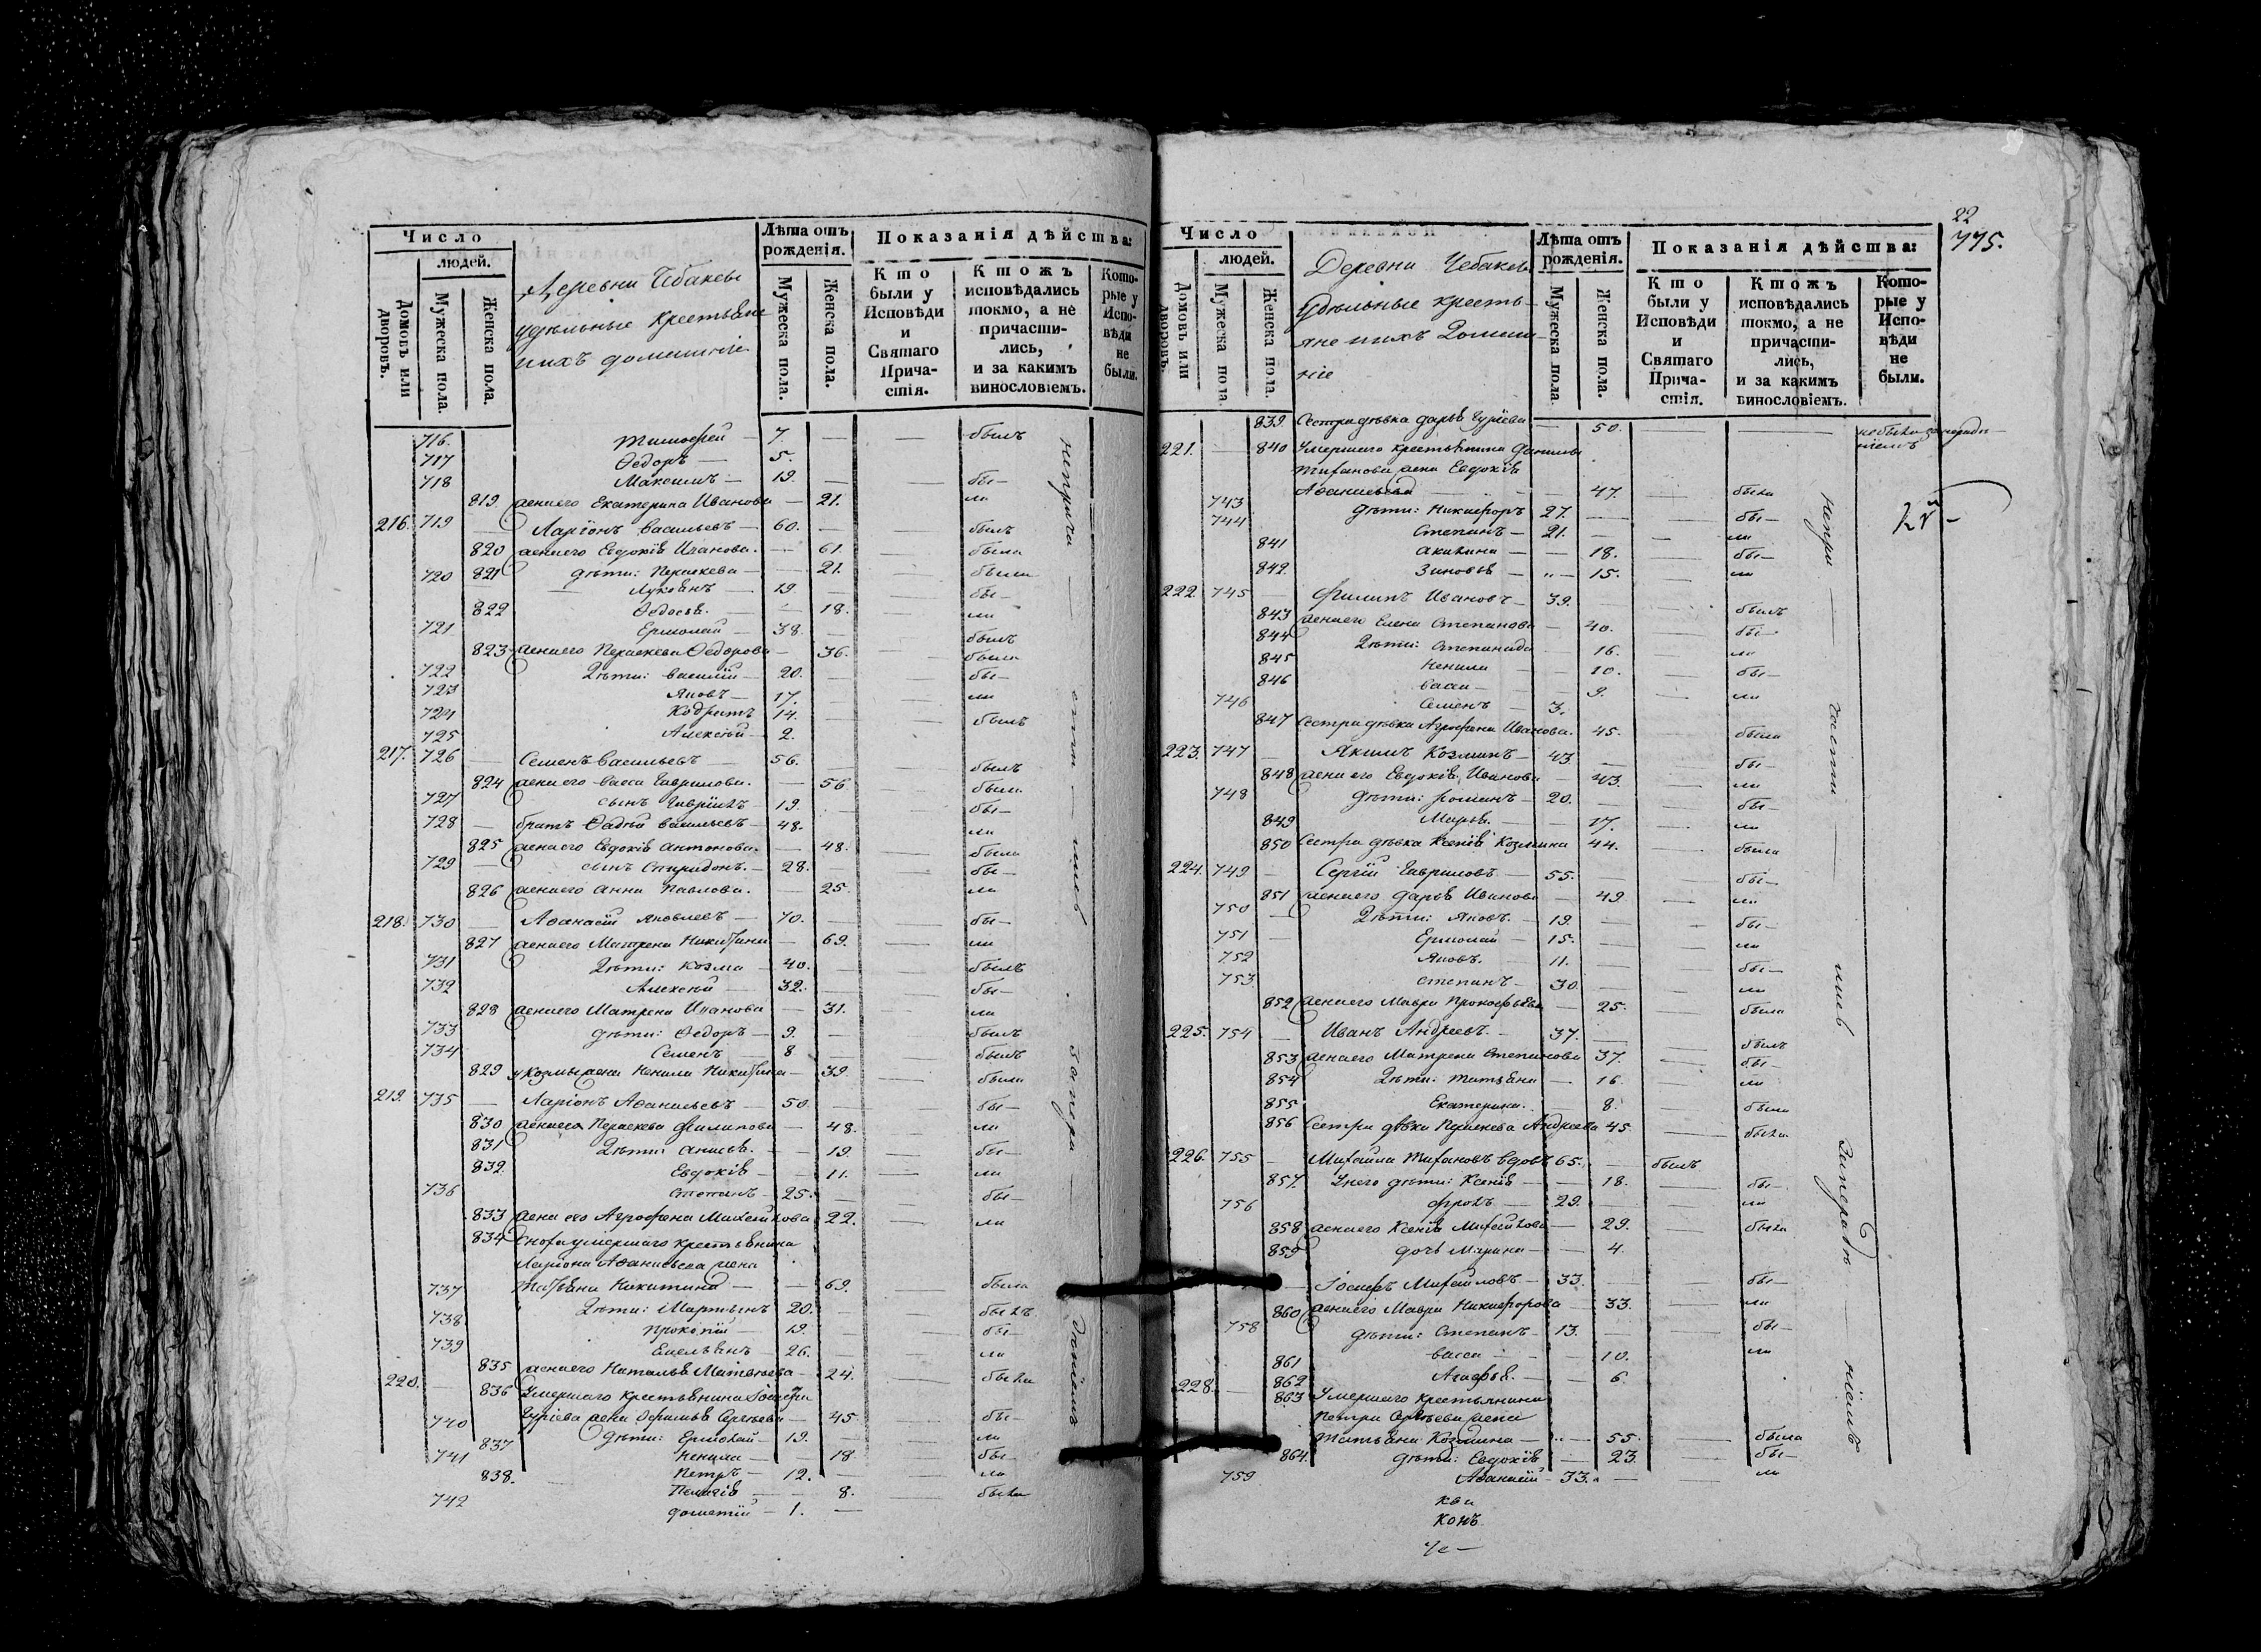 Число
людей.
Домовъ или дворовъ.
Мужеска пола.
Женска пола.
Деревни Чебаковы
удѣльные крестьяне
ихъ домашніе
Лѣта отъ рожденія.
Мужеска пола.
Женска пола.
Показанія дѣйства:
Кто были у Исповѣди и Святаго Прича-стія.
Ктожъ исповѣдались токмо, а не причасти-лись, и за какимъ винословіемъ.
Кото-рые у Испо-вѣди не были.
716. Тимофей — 7. — — былъ
717 Ѳедоръ — 5.
718 Максимъ — 19. — бы—
819 жена его Екатерина Иванова — 21. ли
216. 719 — Ларіонъ Васильевъ — 60. — былъ
820 жена его Евдокія Иванова. — 61. была
720 821 дѣти: Параскева — 21. была
Лукіанъ 19. — бы—
822 Ѳедосья. — 18. ли
721 Ермолай — 38. — былъ
823 жена его Параскева Ѳедорова — 36. была
722 Дѣти: Василій — 20. — бы—
723 Яковъ — 17. — ли
724 Кодратъ 14. — былъ
725 Алексѣй — 2.
217. 726 — Семенъ Васильевъ — 56. — былъ
824 жена его Васса Гаврилова. — 56 была
727 сынъ Гавріилъ — 19. — бы—
728 — братъ Фадѣй Васильевъ — 48. ли
825 жена его Евдокія Антонова. — 48. была
729 — сынъ Спиридонъ. — 28. — бы—
826 жена его Анна Павлова. — 25. ли
218. 730 — Афанасій Яковлевъ — 70. — бы—
827 жена его Матрена Никитина — 69. ли
731 Дѣти: Козма — 40. — былъ
732 Алексѣй — 32. — бы—
828 жена его Матрена Иванова — 31. ли
733 дѣти: Ѳедоръ — 9. — былъ
734 Семенъ 8 — былъ
829 у Козмы жена Ненила Никитина — 39. была
219. 735 — Ларіонъ Афанасьевъ — 50. — бы—
830 жена его Параскева Филипова — 48. ли
831 Дѣти: Анисья. — 19. бы—
832. Евдокія — 11. ли
736 Степанъ — 25. — бы—
833 жена его Агрофена Михайлова 22. ли
834 Сноха умершаго крестьянина
Ларіона Афанасьева жена
Татьяна Никитина — 69. была
737 Дѣти: Мартынъ 20. — былъ
738 Прокопій — 19. — бы—
739 Емельянъ — 26. — ли
835 жена его Наталья Матвѣева — 24. была
220. — 836 Умершаго крестьянина Іосифа
Гуріева жена Сергѣева — 45. бы—
740 Дѣти: Ермолай — 19. — ли
837 Ненила — 18. бы—
741 Петръ — 12. — ли
838. Пелагія — 8. была
742 Дометій — 1. —
непричастились за нерадѣніемъ
22
775.
Число
людей.
Домовъ или дворовъ.
Мужеска пола.
Женска пола.
Деревни Чебаковы
Удѣльные кресть—
яне ихъ Домаш—
ніе
Лѣта отъ рожденія.
Мужеска пола.
Женска пола.
Показанія дѣйства:
Кто были у Исповѣди и Святаго Прича-стія.
Ктожъ исповѣдались токмо, а не причасти-лись, и за какимъ винословіемъ.
Кото-рые у Испо-вѣди не были.
839. Сестра дѣвка Дарья Гуріева — 50. — не была за неради—
ніемъ
221. — 840 Умершаго крестьянина Данилы
Тиханова жена Евдокія
Афанасьева — 47. — была
743 дѣти: Никифоръ 27. — бы—
744 Степанъ — 21. — ли
841 Акилина — 18. бы—
842. Зиновья — 15. ли
222. 745 — Филипъ Ивановъ — 39. — былъ
843 жена его Елена Степанова — 40. бы—
844 Дѣти: Степанида 16. ли
845 Ненила — 10. бы—
846 Васса — 9. ли
746 Семенъ — 3.
847 Сестра дѣвка Агрофена Иванова. 45. была
223. 747 — Якимъ Козминъ — 43. — бы—
848 жена его Евдокія Иванова — 43. ли
748 дѣти: Романъ — 20. — бы—
849 Марья. — 17. ли
850 Сестра дѣвка Ксенія Козмина 44. была
224. 749 — Сергій Гавриловъ — 55. — бы—
851 жена его Дарья Иванова — 49. ли
750 — Дѣти: Яковъ. — 19. — бы—
751 — Ермолай — 15. — ли
752 Яковъ. — 11. — бы—
753 Степанъ — 30. — ли
852 жена его Мавра Прокофьева — 25. была
225. 754 — Иванъ Андреевъ. — 37. — былъ
853 жена его Матрена Степанова 37. бы—
854 Дѣти: Татьяна — 16. ли
855 Екатерина. 8. была
856 Сестра дѣвка Параскева Андреева 45. была
226. 755 — Михайла Тихановъ вдовъ 65. — былъ
857. У него дѣти: Ксенія — 18. бы—
756 Фролъ — 29. ли
858 жена его Ксенія Михайлова — 29. была
859 дочь Марина — 4.
Іосифъ Михайловъ — 33. — бы—
860 жена его Мавра Никифорова — 33. ли
758 дѣти: Степанъ — 13. — бы—
861 Васса — 10. ли
862 Агафья. — 6.
228. — 863 Умершаго крестьянина
Петра Сергѣева жена
Татьяна Козмина — 55. была
864. дѣти: Евдокія — 23. бы—
759 Афанасій — 33. — ли
непричастились занерадѣніемъ